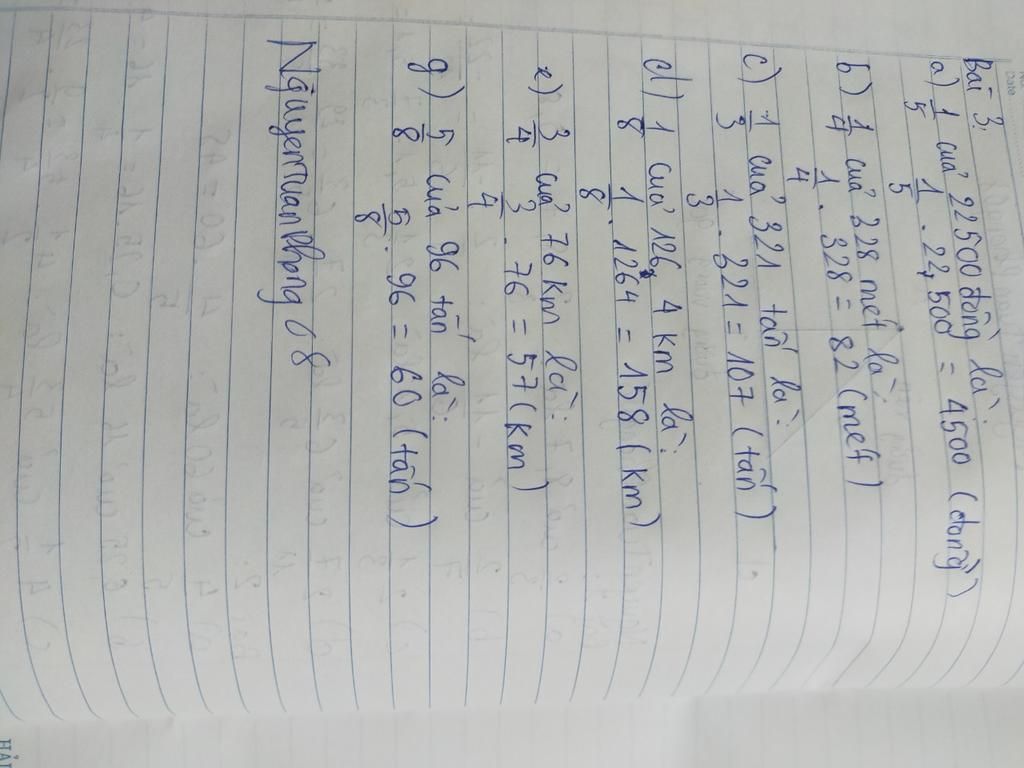 Bài 3.
a) 1/5 của 22500 đồng là:
1/5 . 22500 = 4500 (đồng)
b) 1/4 của 328 mét là:
1/4 . 328 = 82 (mét)
c) 1/3 của 321 tấn là:
1/3 . 321 = 107 (tấn)
d) 1/8 của 126 4 km là:
1/8 . 1264 = 158 (km)
e) 3/4 của 76 km là:
3/4 . 76 = 57 (km)
g) 5/8 của 96 tấn là:
5/8 . 96 = 60 (tấn)
NguyenTuanPhong 68